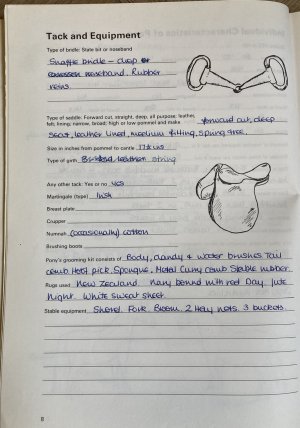 Tack and Equipment
Type of bridle: State bit or noseband
Snaffle bridle - drop
noseband. Rubber
reins.
Type of saddle. Forward cut, straight, deep, all purpose; leather,
felt; lining; narrow, broad; high or low pommel and make forward cut, deep
seat, leather lined, medium fitting, spring tree.
Size in inches from pommel to cantle 17½ ins
Type of girth string
Any other tack: Yes or no yes
Martingale (type) Irish
Breast plate
Crupper
Numnah (occasionally) cotton
Brushing boots
Pony's grooming kit consists of Body, dandy & water brushes. Tail
comb. Hoof pick. Sponge. Metal Curry comb Stable rubber.
Rugs used New Zealand. Navy bound with red Day. Jute
Night. White sweat sheet.
Stable equipment Shovel. Fork. Broom. 2 Hay nets. 3 buckets.
8